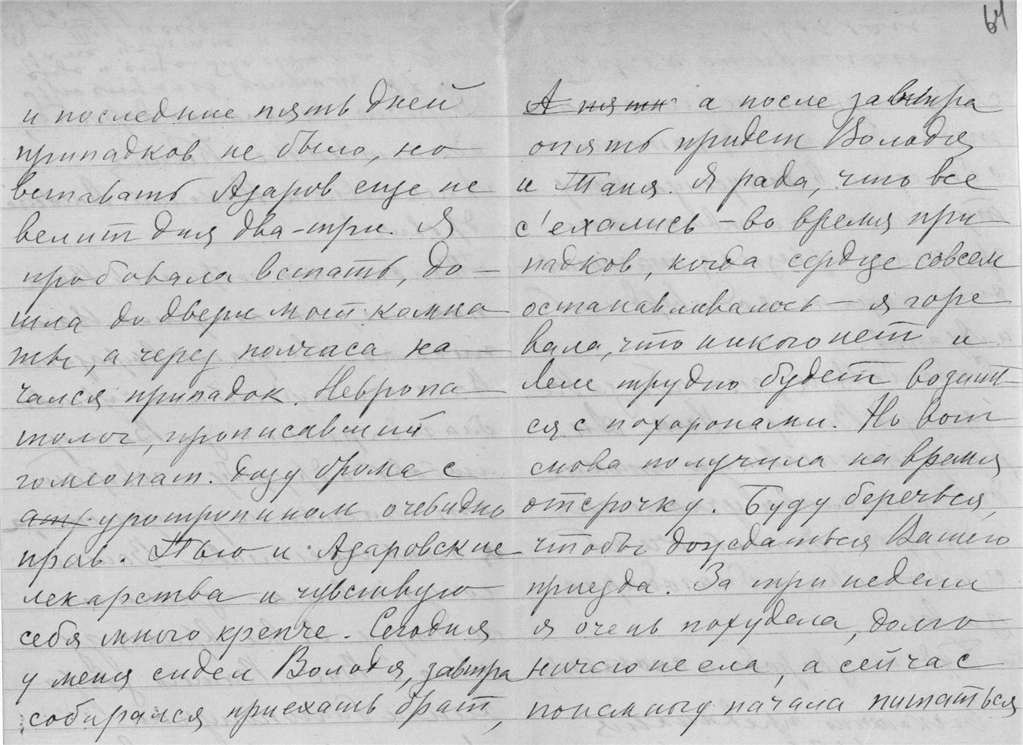 64
и последние пять дней
припадков не было, но
вставать Азаров еще не
велит дня два-три. Я
пробовала встать, до-
шла до двери моей комна-
ты, а через полчаса на-
чался припадок. Невропа-
толог, прописавший
гомеопат. дозу брома с
уротропином очевидно
прав. Пью и Азаровские
лекарства и чувствую
себя много крепче. Сегодня
у меня сидел Володя, завтра
собирался приехать брат,
А а после завтра
опять придет Володя
и Таня. Я рада, что все
с'ехались – во время при-
падков, когда сердце совсем
останавливалось – я горе
вала, что никого нет и
Леле трудно будет возит
ся с похоронами. Но вот
снова получила на время
отсрочку. Буду беречься,
чтобы дождаться Вашего
приезда. За три недели
я очень похудела, долго
ничего не ела, а сейчас
понемногу начала питаться